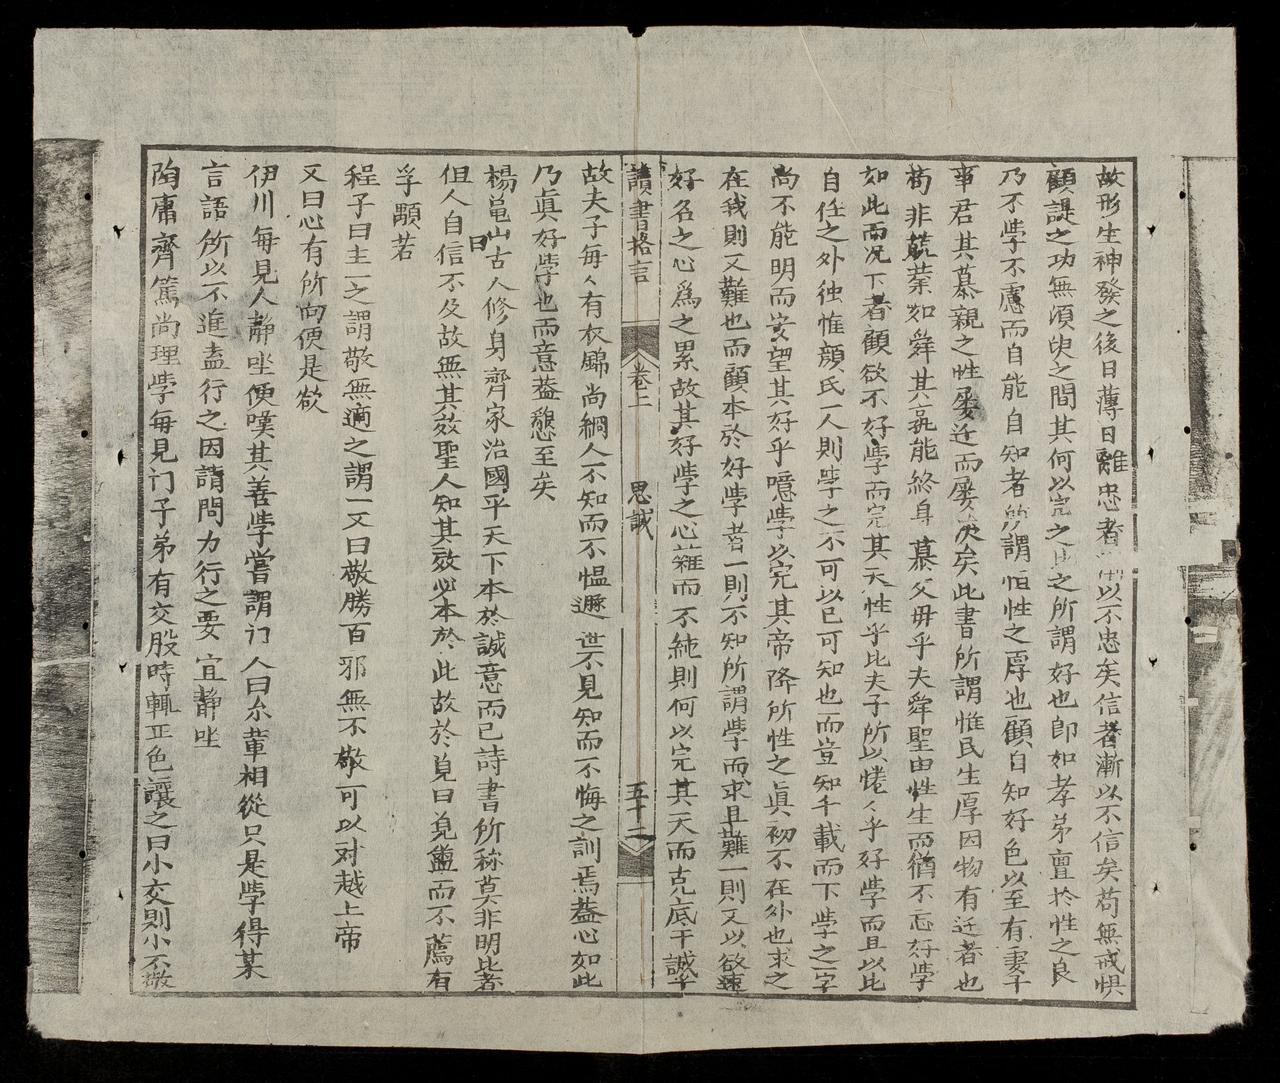 故形生神發之後日薄日離忠者以不忠矣信者漸以不信矣苟無戒惧
顧諟之功無須臾之間其何以完之此之所謂好也卽如孝弟亶於性之良
乃不學不慮而自能自知者所謂恒性之厚也顧自知好色以至有妻子
事君其慕親之性屡迁而屡决矣此書所謂惟民生厚因物有迁者也
苟非蔬菜如舜其孰能終身慕父毋乎夫舜聖由性生而猶不忘好學
如此而况下者顧欲不好學而完其天性乎此夫子所以惓々乎好學而且以此
自任之外独惟顔氏一人則學之不可以已可知也而豈知千載而下學之一字
尚不能明而妄望其好乎噫學以完其帝降所性之眞初不在外也求之
在我則又難也而顧本於好學者一則不知所謂學而求且難一則又以欲速
好名之心爲之累故其好學之心雜而不純則何以完其天而克底于誠乎
讀書格言 卷上 思誠 五十二
故夫子每々有衣錦尚絅人不知而不愠遯世不見知而不悔之訓焉蓋心如此
乃眞好學也而意益懇至矣
楊亀山曰古人修身齊家治國平天下本於誠意而已詩書所称莫非明此者
但人自信不及故無其效聖人知其效必本於此故於覌曰覌盥而不薦有
孚顒若
程子曰主一之謂敬無適之謂一又曰敬勝百邪無不敬可以对越上帝
又曰心有所向便是欲
伊川每見人靜坐便嘆其善學嘗謂门人曰尔軰相從只是學得某
言語所以不進盍行之因請問力行之要宜靜坐
陶庸齊篤尚理學每見门子弟有交股時輒正色讓之曰小交則小不敬